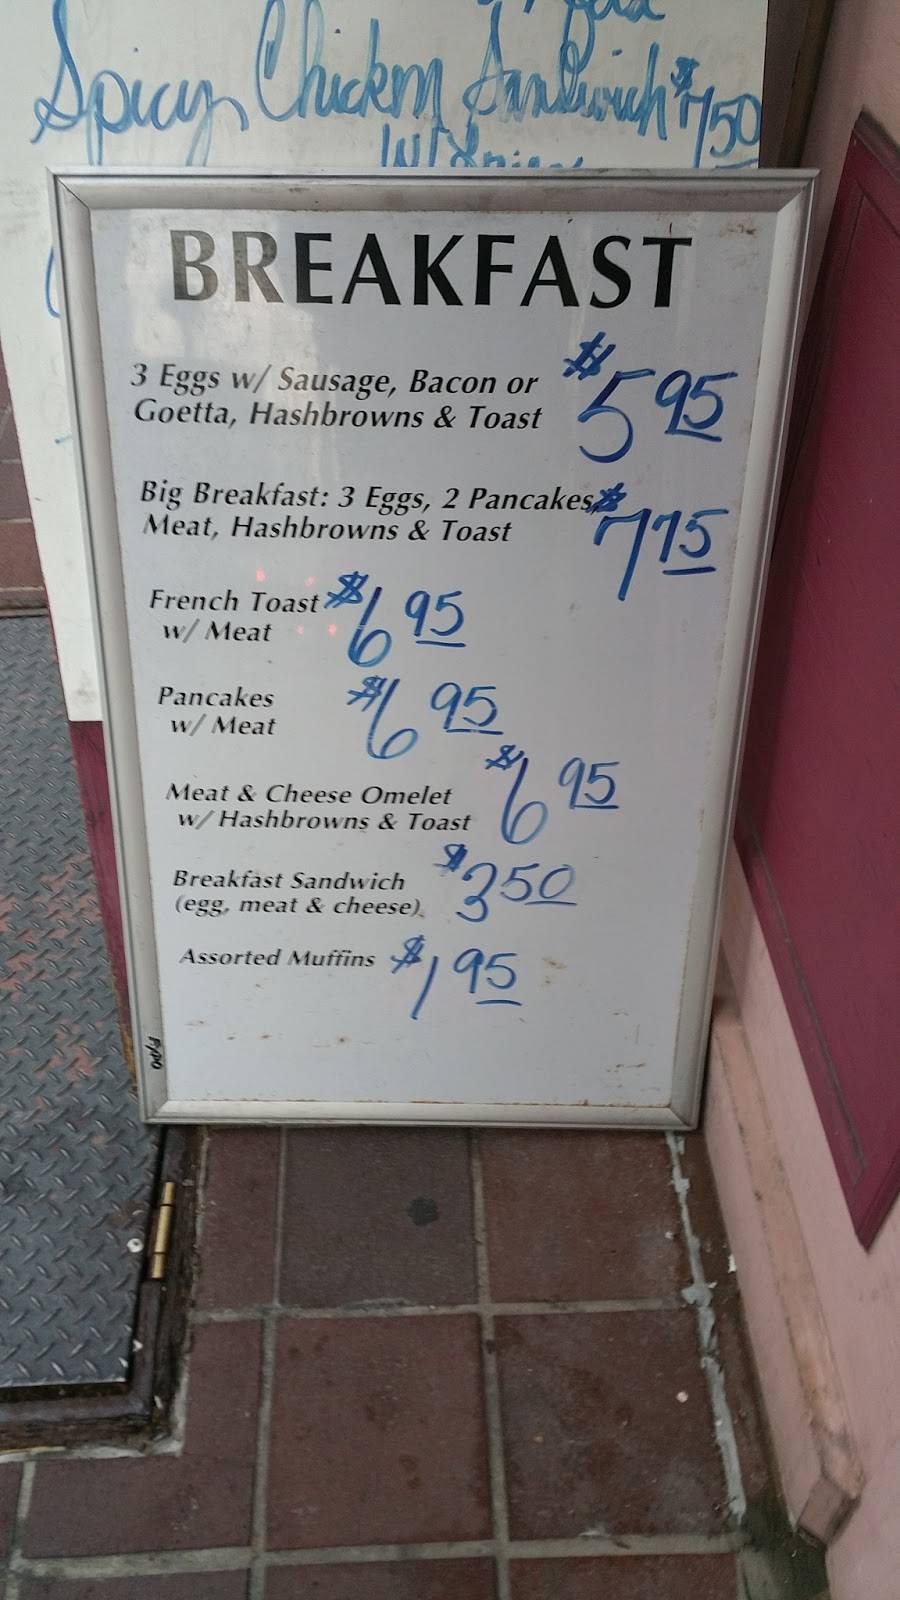 Spicy Chicken Sandwich $7.50
W/
BREAKFAST
3 Eggs w/ Sausage, Bacon or
Goetta, Hashbrowns & Toast $5 95
Big Breakfast: 3 Eggs, 2 Pancakes,
Meat, Hashbrowns & Toast $7 75
French Toast $6 95
w/ Meat
Pancakes $6 95
w/ Meat
Meat & Cheese Omelet $6 95
w/ Hashbrowns & Toast
Breakfast Sandwich $3 50
(egg, meat & cheese)
Assorted Muffins $1 95